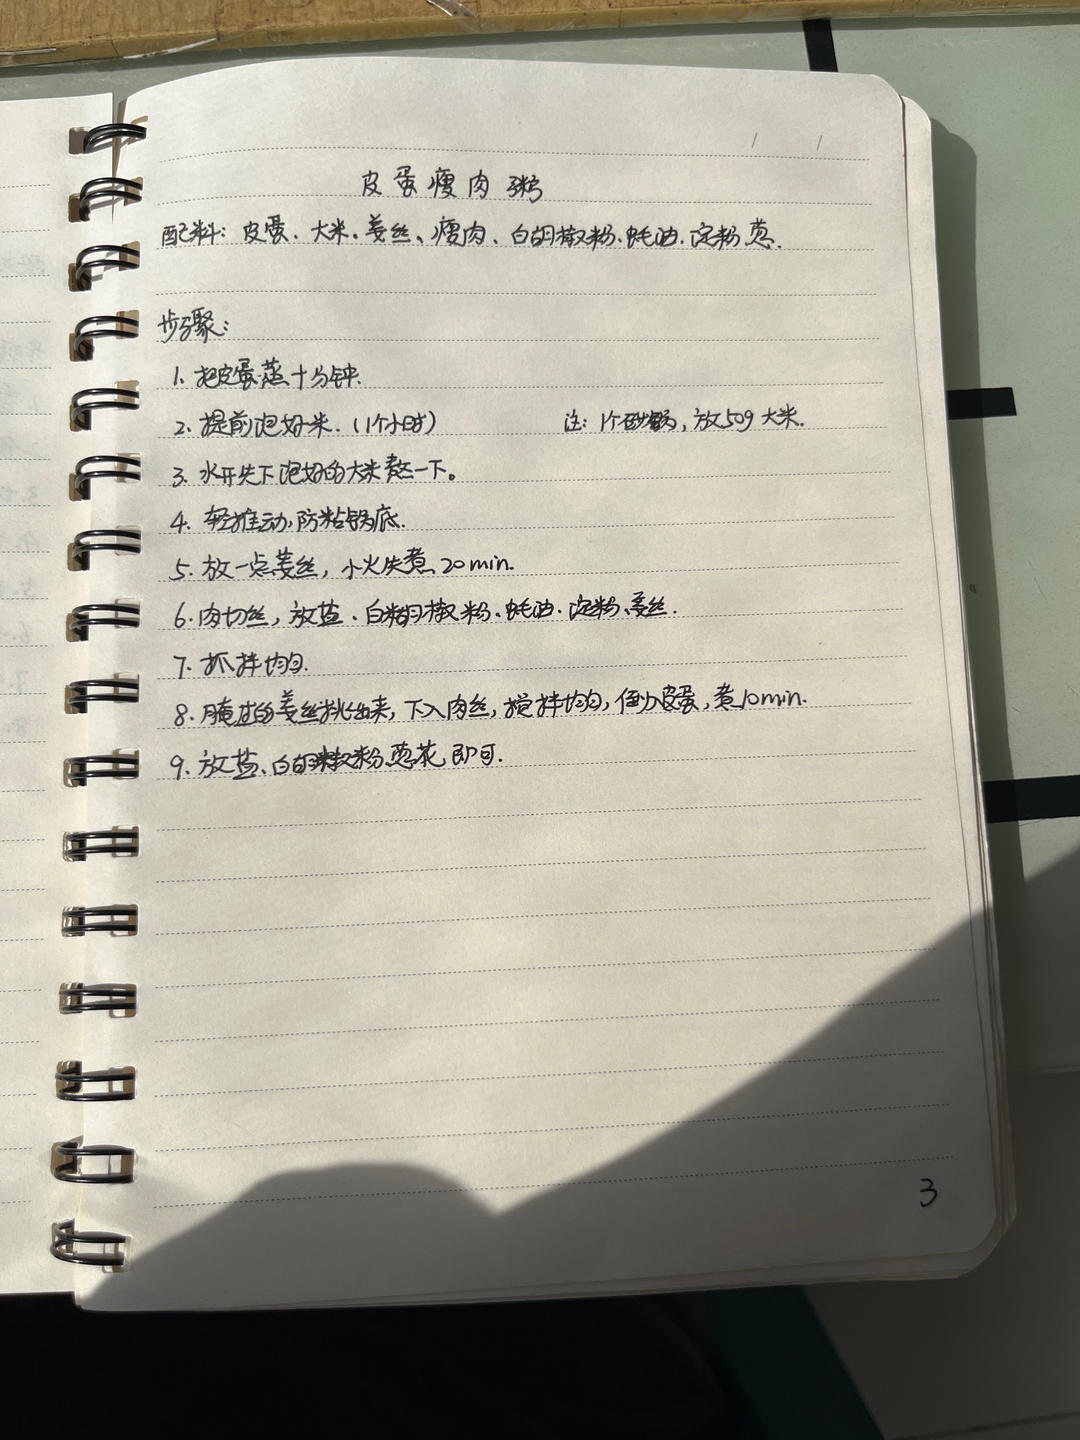 / /
皮蛋瘦肉粥
配料: 皮蛋、大米、姜丝、瘦肉、白胡椒粉、蚝油、淀粉、葱.
步骤:
1. 把皮蛋蒸十分钟.
2. 提前泡好米. (1个小时) 注: 1个砂锅, 放50g大米.
3. 水开先下泡好的大米熬一下。
4. 轻推动, 防粘锅底.
5. 放一点姜丝, 小火先煮 20min.
6. 肉切丝, 放盐、白糊椒粉、蚝油、淀粉、姜丝.
7. 抓拌均匀.
8. 腌过的姜丝挑出来, 下入肉丝, 搅拌均匀, 倒入皮蛋, 煮10min.
9. 放盐、白胡椒粉、葱花, 即可.
3